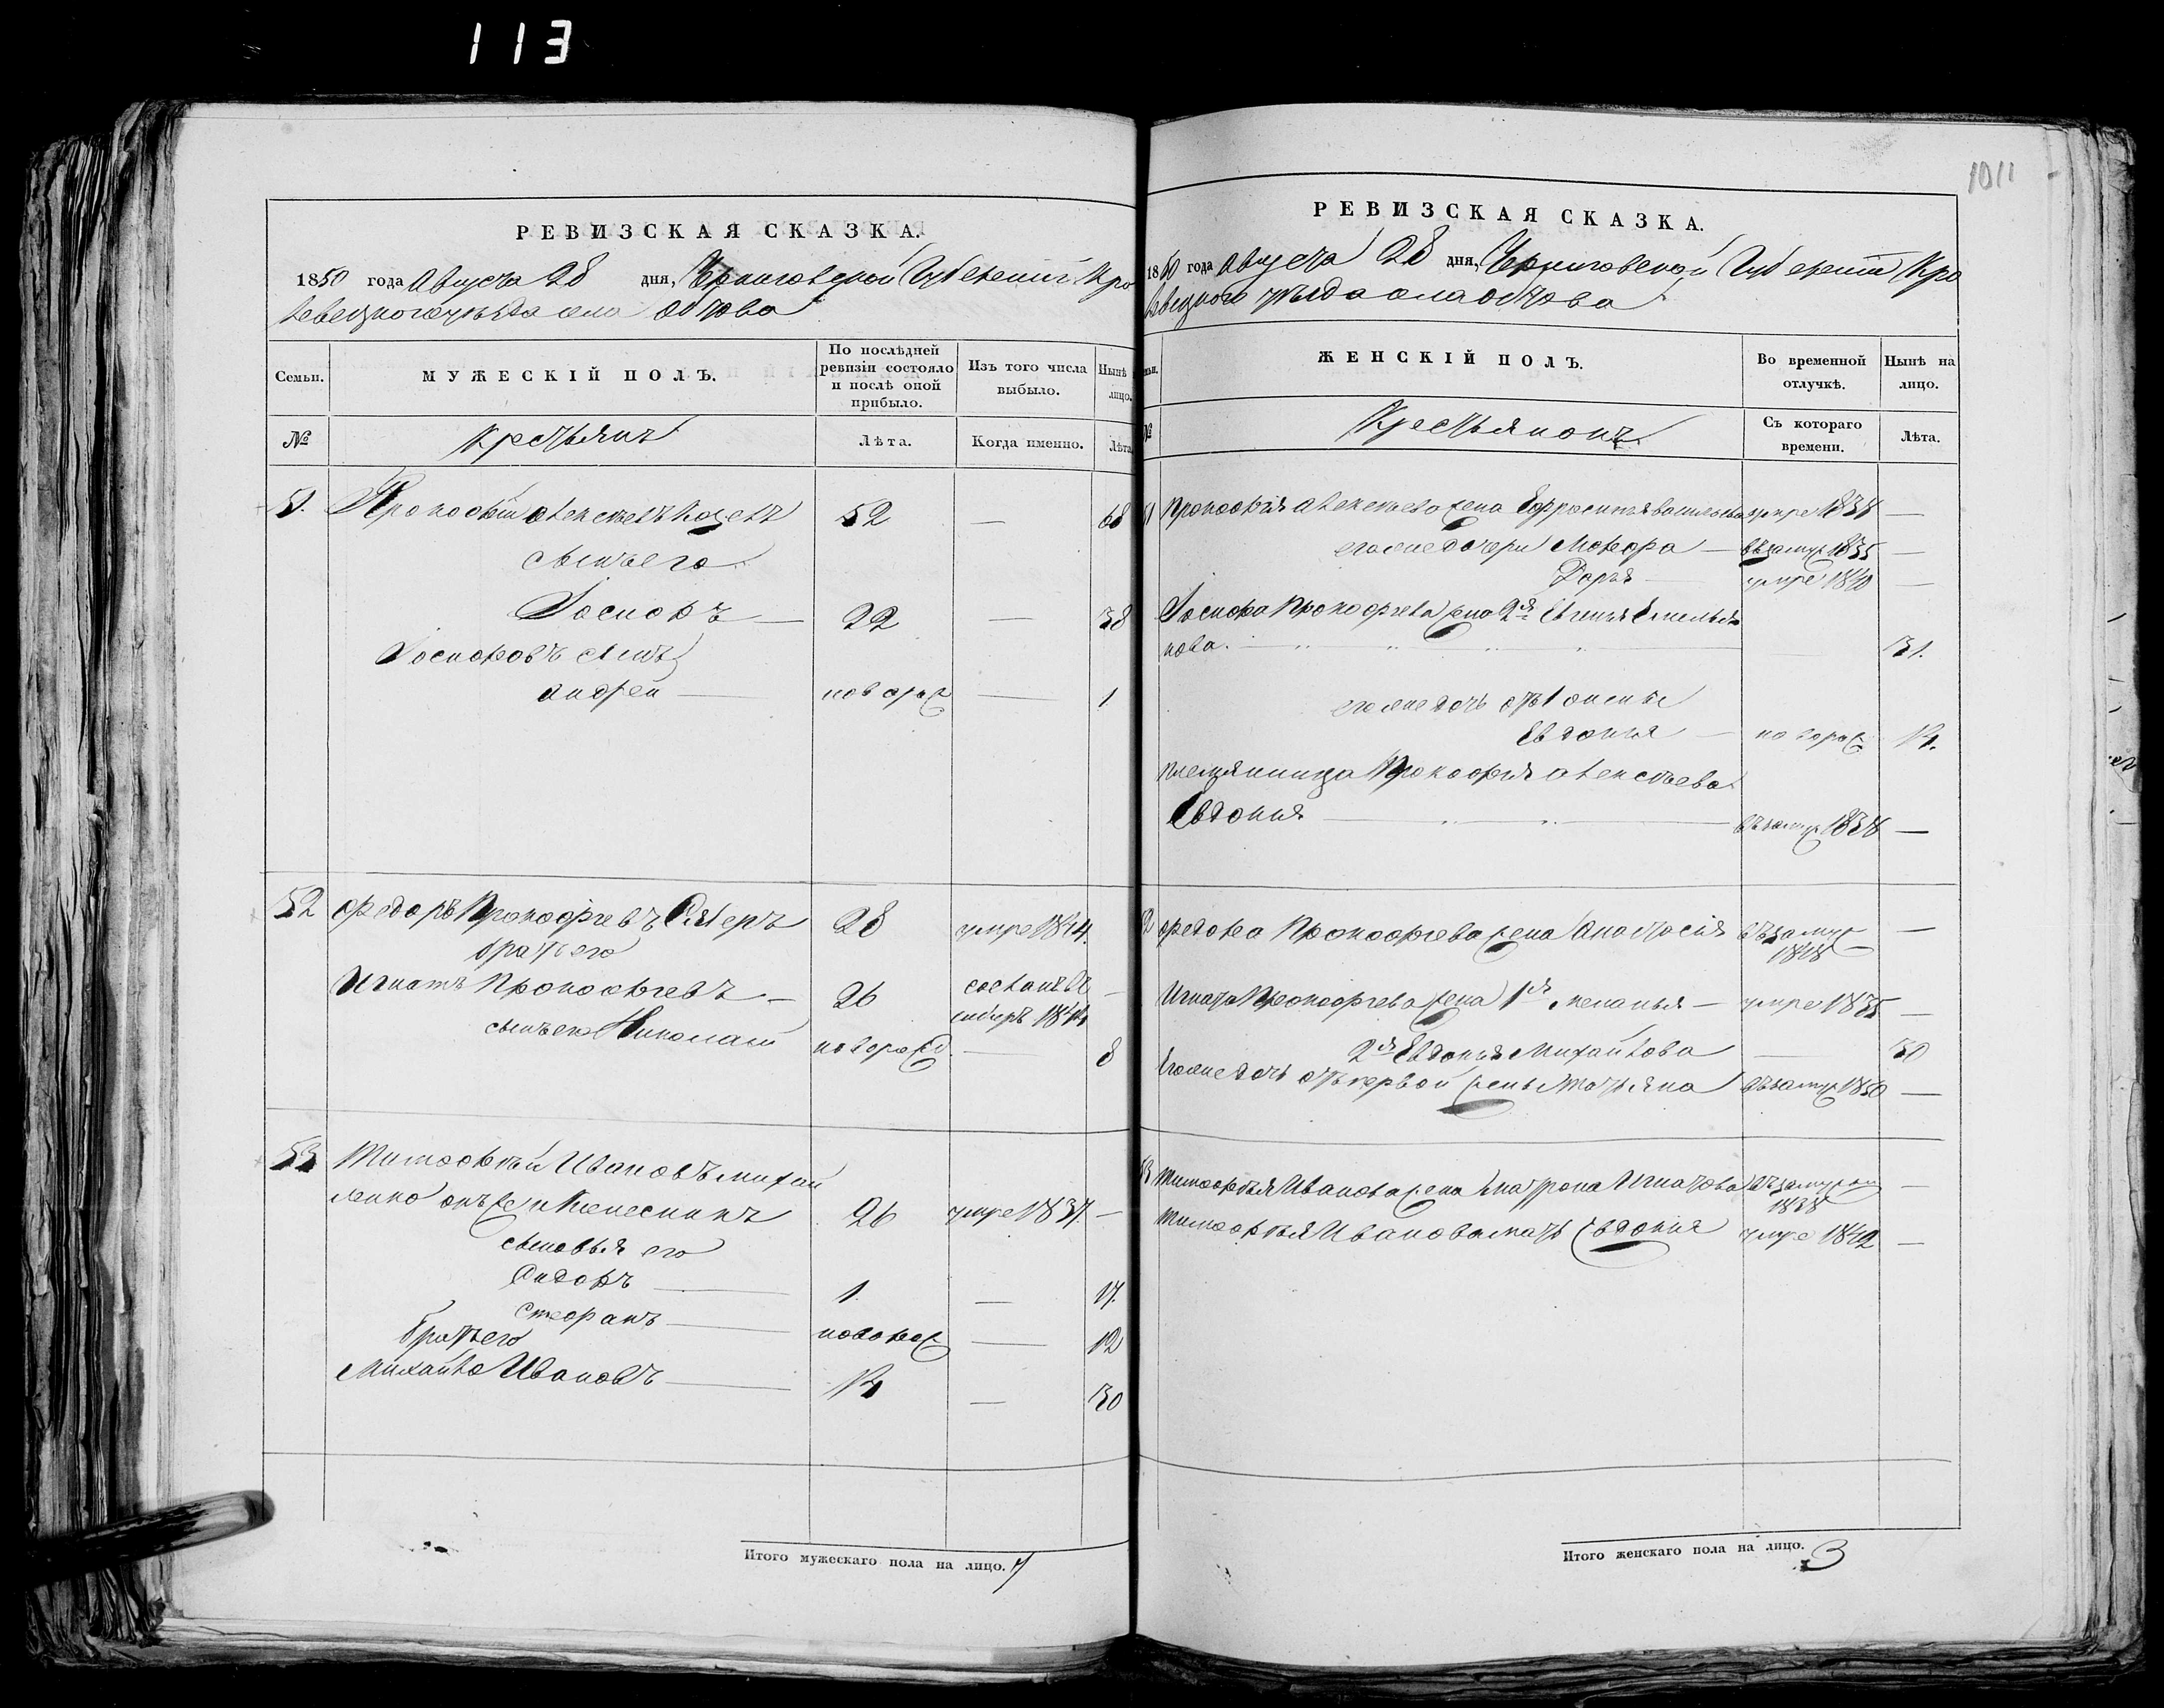 113
1011
РЕВИЗСКАЯ СКАЗКА.
1850 года Августа 28 дня, Черниговской Губернiи Кро
левецкого уѣзда села Обтова
Семьи.
МУЖЕСКІЙ ПОЛЪ.
По послѣдней ревизіи состояло и послѣ оной прибыло.
Изъ того числа выбыло.
Нынѣ лицо.
№
Крестьянъ
Лѣта.
Когда именно.
Лѣта
51. Прокофiй Алексѣевъ 52 — 68
сынъ его
Іосифъ — 22 — 38
Іосифовъ сынъ
Андрей —новорож — 1
52 Федоръ Прокофiевъ 28 умре 1844.
братъ его
Игнатъ Прокофiевъ — 26 сосланъ въ —
сибирь 1844
сынъ его Николай новорожд — 8
53 Тимофѣй Ивановъ Михай
ленко онъ же и Колесникъ 26 умре 1837. —
сыновья его
Сидоръ — 1. — 17.
Стефанъ — новорож — 12
братъ его
Михайло Ивановъ — 14 — 30
Итого мужескаго пола на лицо. 7
РЕВИЗСКАЯ СКАЗКА.
1850 года Августа 28 дня, Черниговской Губернiи Кро
левецкого уѣзда села Обтова
ЖЕНСКІЙ ПОЛЪ.
Во временной отлучкѣ.
Нынѣ на лицо.
№
Крестьянокъ
Съ котораго времени.
Лѣта.
51 Прокофiя Алексѣева жена Ефросинiя Васильева умре 1838 —
его же дочери — взамуж 1835 —
Дарья — умре 1840 —
Іосифа Прокофiева жена 2я Емелья
нова. — 31.
его же дочь отъ 1 жены
Евдокiя — новорож 14.
племянница Прокофiя Алексѣева
Евдокiя — взамуж 1838 —
Федора Прокофiева жена Анастасiя взамуж —
1848
Игната Прокофiева жена 1я Меланья — умре 1835 —
2я Евдокiя Михайлова — 30
Его же дочь отъ первой жены Татьяна взамуж 1850 —
53 Тимофѣя Иванова жена Матрона Игнатова взамуж —
1838
Тимофѣя Иванова мать Евдокiя умре 1842 —
Итого женскаго пола на лицо. 3